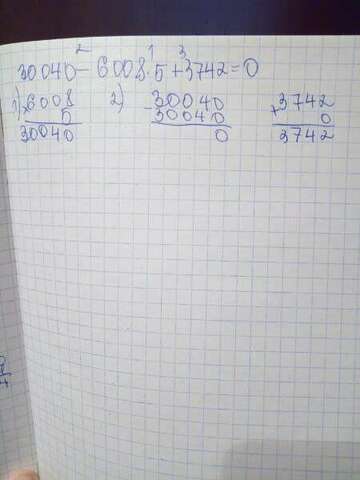 2 1 3
30040 - 6008 · 5 + 3742 = 0
1) 6008 2) 30040 3742
× 5 - 30040 + 0
30040 0 3742